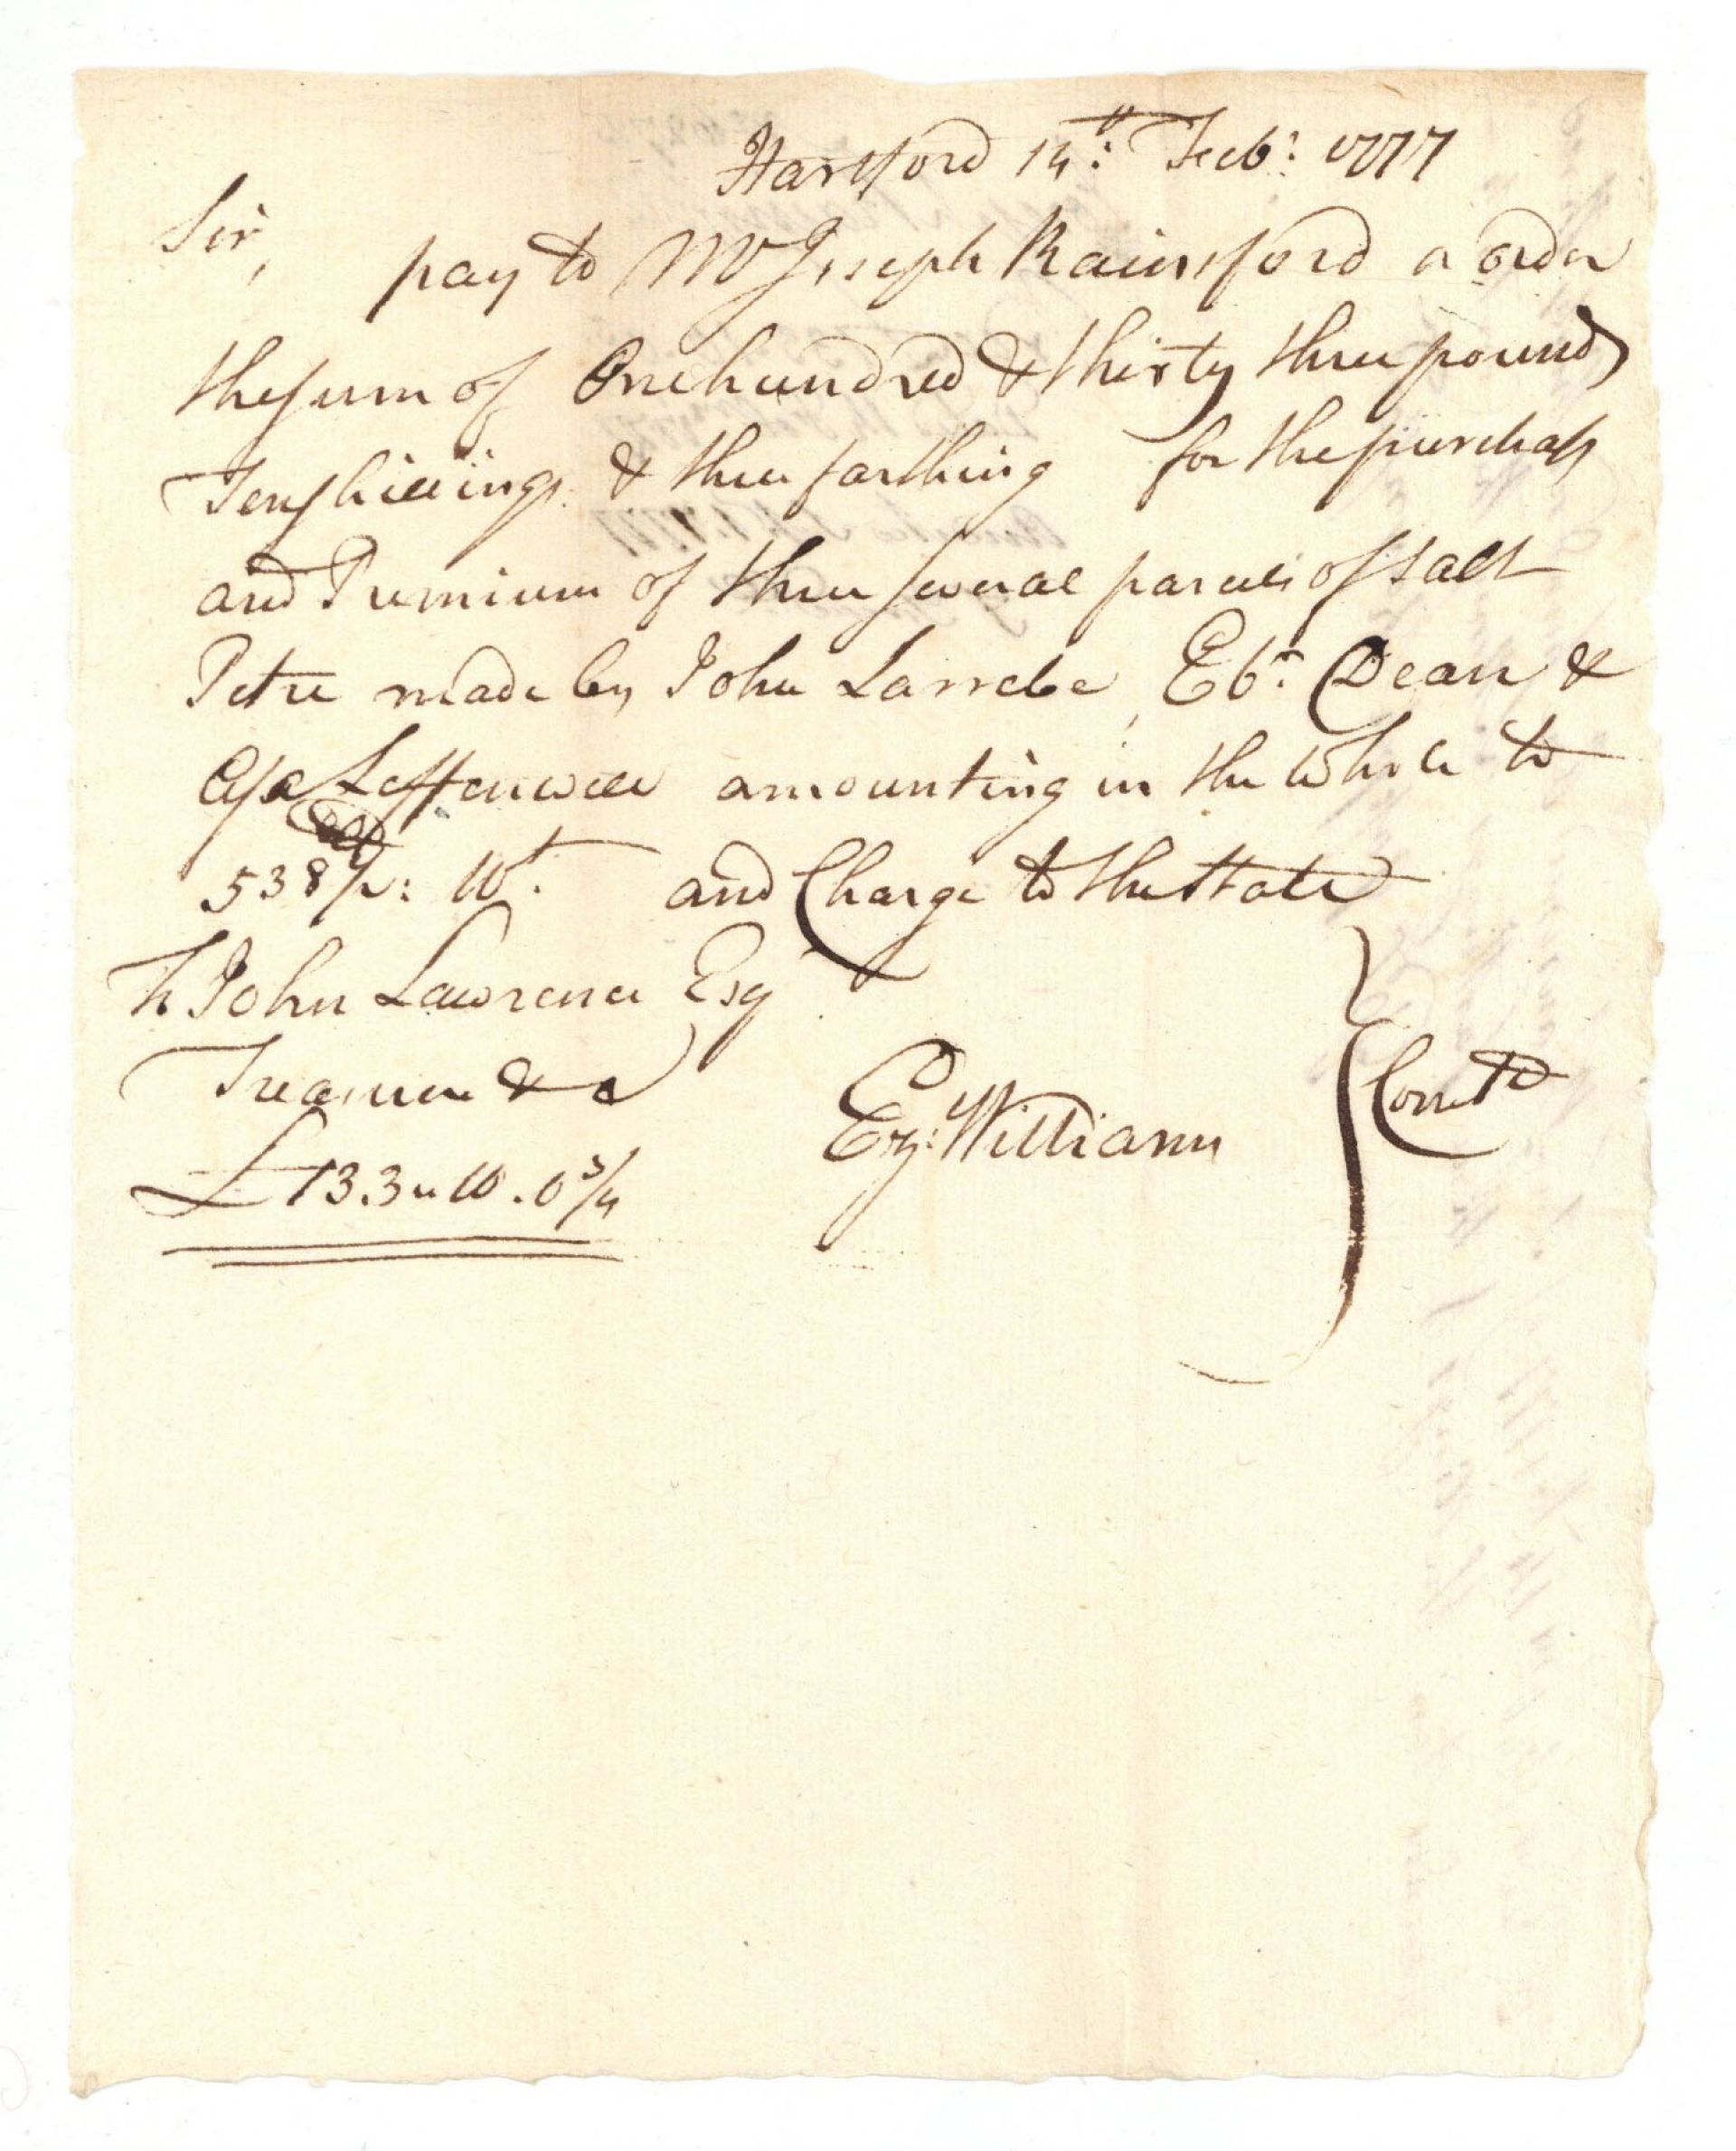 Hartford 14th: Feb: 1777
Sir, pay to Mr Joseph Rainsford or order
the sum of One hundred & thirty three pounds
Ten shillings & three farthing for the purchass
and Premium of three several parcels of Salt
Petre made by John Larrebe, Ebr. Dean &
Asa Leffenwell amounting in the whole to
538 1/2: Wt. and Charge to the State
To John Lawrence Esq
Treasurer & c
Ez: Williams } Comtte
£133 " 10 . 0 3/4